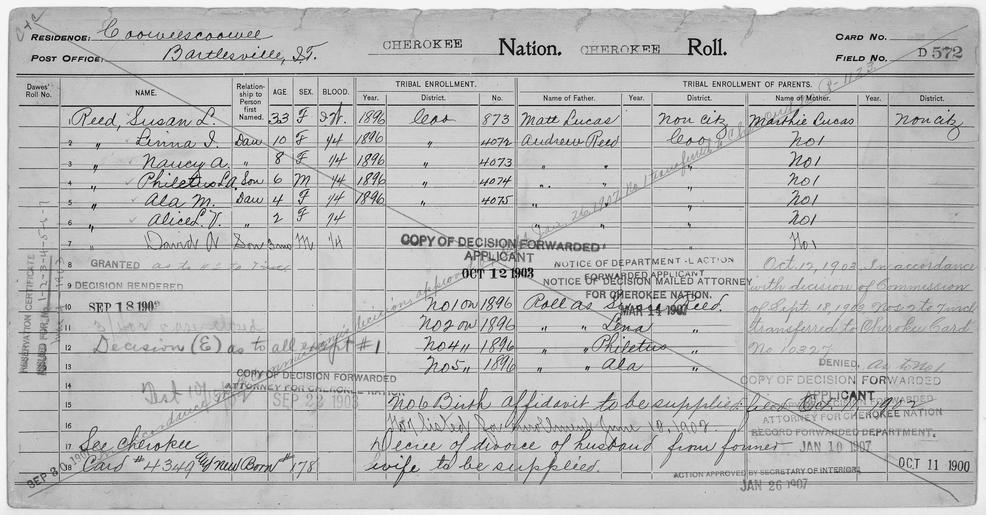 RESIDENCE: Cooweescoowee
POST OFFICE: Bartlesville, I.T.
CHEROKEE Nation. CHEROKEE Roll.
CARD NO.
FIELD NO. D 572
Dawes' Roll No. NAME. Relationship to Person first Named. AGE SEX. BLOOD. TRIBAL ENROLLMENT. Year. District. No. TRIBAL ENROLLMENT OF PARENTS. Name of Father. Year. District. Name of Mother. Year. District.
1 Reed, Susan L. 33 F I.W. 1896 Coo 873 Matt Lucas Non citz Marthie Lucas Non citz
2 " Linna I. Dau 10 F 1/4 1896 " 4072 Andrew Reed Coo No 1
3 " Nancy A. " 8 F 1/4 1896 " 4073 " " " No 1
4 " Philetus L.A. Son 6 M 1/4 1896 " 4074 " " " No 1
5 " Ala M. Dau 4 F 1/4 1896 " 4075 " " " No 1
6 " Alice L.V. " 2 F 1/4 " " " No 1
7 " David A Son 3mo M 1/4 No 1
COPY OF DECISION FORWARDED
APPLICANT
OCT 12 1903
8 GRANTED as to No 2 to 7 incl
NOTICE OF DEPARTMENTAL ACTION
FORWARDED APPLICANT
Oct. 12, 1903 In accordance
9 DECISION RENDERED
NOTICE OF DECISION MAILED ATTORNEY
FOR CHEROKEE NATION.
MAR 14 1907
with decision of Commission
SEP 18 1903
10 No 1 on 1896 Roll as Reed.
of Sept. 18, 1903 Nos 2 to 7 incl
11 No 2 on 1896 " " Lena "
transferred to Cherokee Card
Decision (E) as to all except #1
12 No 4 " 1896 " " Philetus "
No 10327
13 No 5 " 1896 " " Ala "
DENIED. As to No 1
COPY OF DECISION FORWARDED
ATTORNEY FOR CHEROKEE NATION
SEP 22 1903
14
COPY OF DECISION FORWARDED
APPLICANT
15 No 6 Birth affidavit to be supplied
ATTORNEY FOR CHEROKEE NATION
16 No 7 listed for enrollment June 10, 1902.
RECORD FORWARDED DEPARTMENT.
JAN 10 1907
17 See Cherokee
Decree of divorce of husband from former
Card # 4349 and New Born # 178
wife to be supplied.
ACTION APPROVED BY SECRETARY OF INTERIOR.
JAN 26 1907
OCT 11 1900